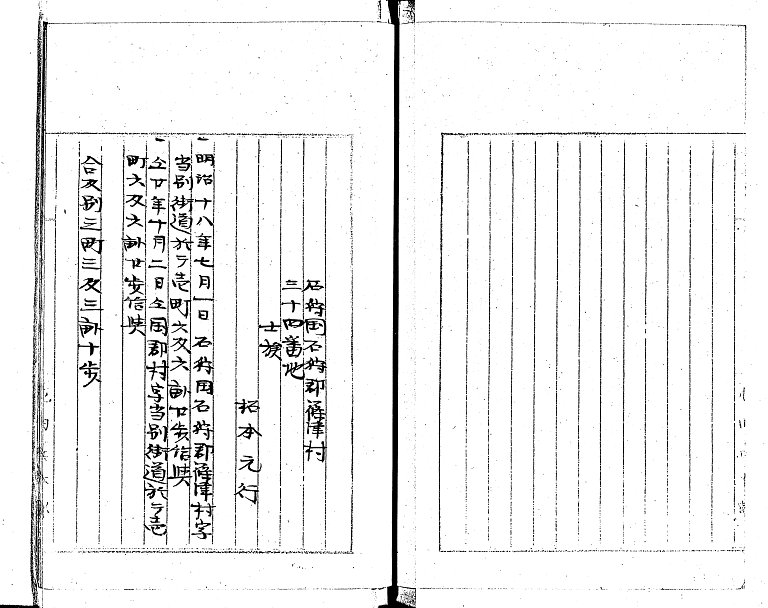 石狩国石狩郡篠津村
三十四番地
士族
柘本元行
一明治十八年七月一日石狩国石狩郡篠津村字
当別街道於テ壱町六反六畝廿歩借典
一仝廿年十月二日仝国郡村字当別街道於テ壱
町六反六畝廿歩借典
合反別三町三反三畝十歩